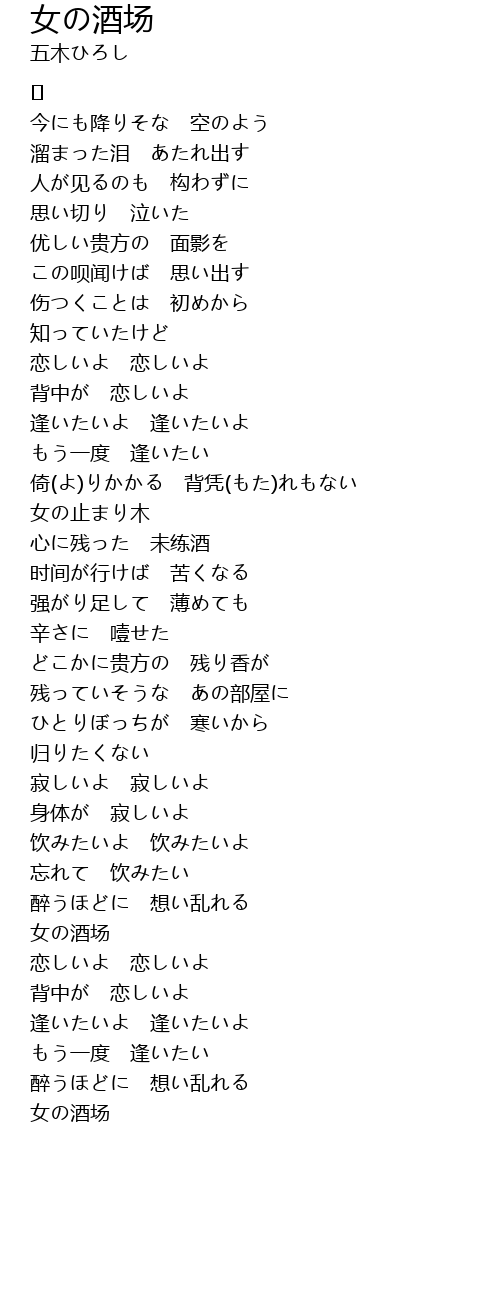 女の酒场
五木ひろし
[]
今にも降りそな　空のよう
溜まった泪　あたれ出す
人が见るのも　构わずに
思い切り　泣いた
优しい贵方の　面影を
この呗闻けば　思い出す
伤つくことは　初めから
知っていたけど
恋しいよ　恋しいよ
背中が　恋しいよ
逢いたいよ　逢いたいよ
もう一度　逢いたい
倚(よ)りかかる　背凭(もた)れもない
女の止まり木
心に残った　未练酒
时间が行けば　苦くなる
强がり足して　薄めても
辛さに　噎せた
どこかに贵方の　残り香が
残っていそうな　あの部屋に
ひとりぼっちが　寒いから
归りたくない
寂しいよ　寂しいよ
身体が　寂しいよ
饮みたいよ　饮みたいよ
忘れて　饮みたい
醉うほどに　想い乱れる
女の酒场
恋しいよ　恋しいよ
背中が　恋しいよ
逢いたいよ　逢いたいよ
もう一度　逢いたい
醉うほどに　想い乱れる
女の酒场